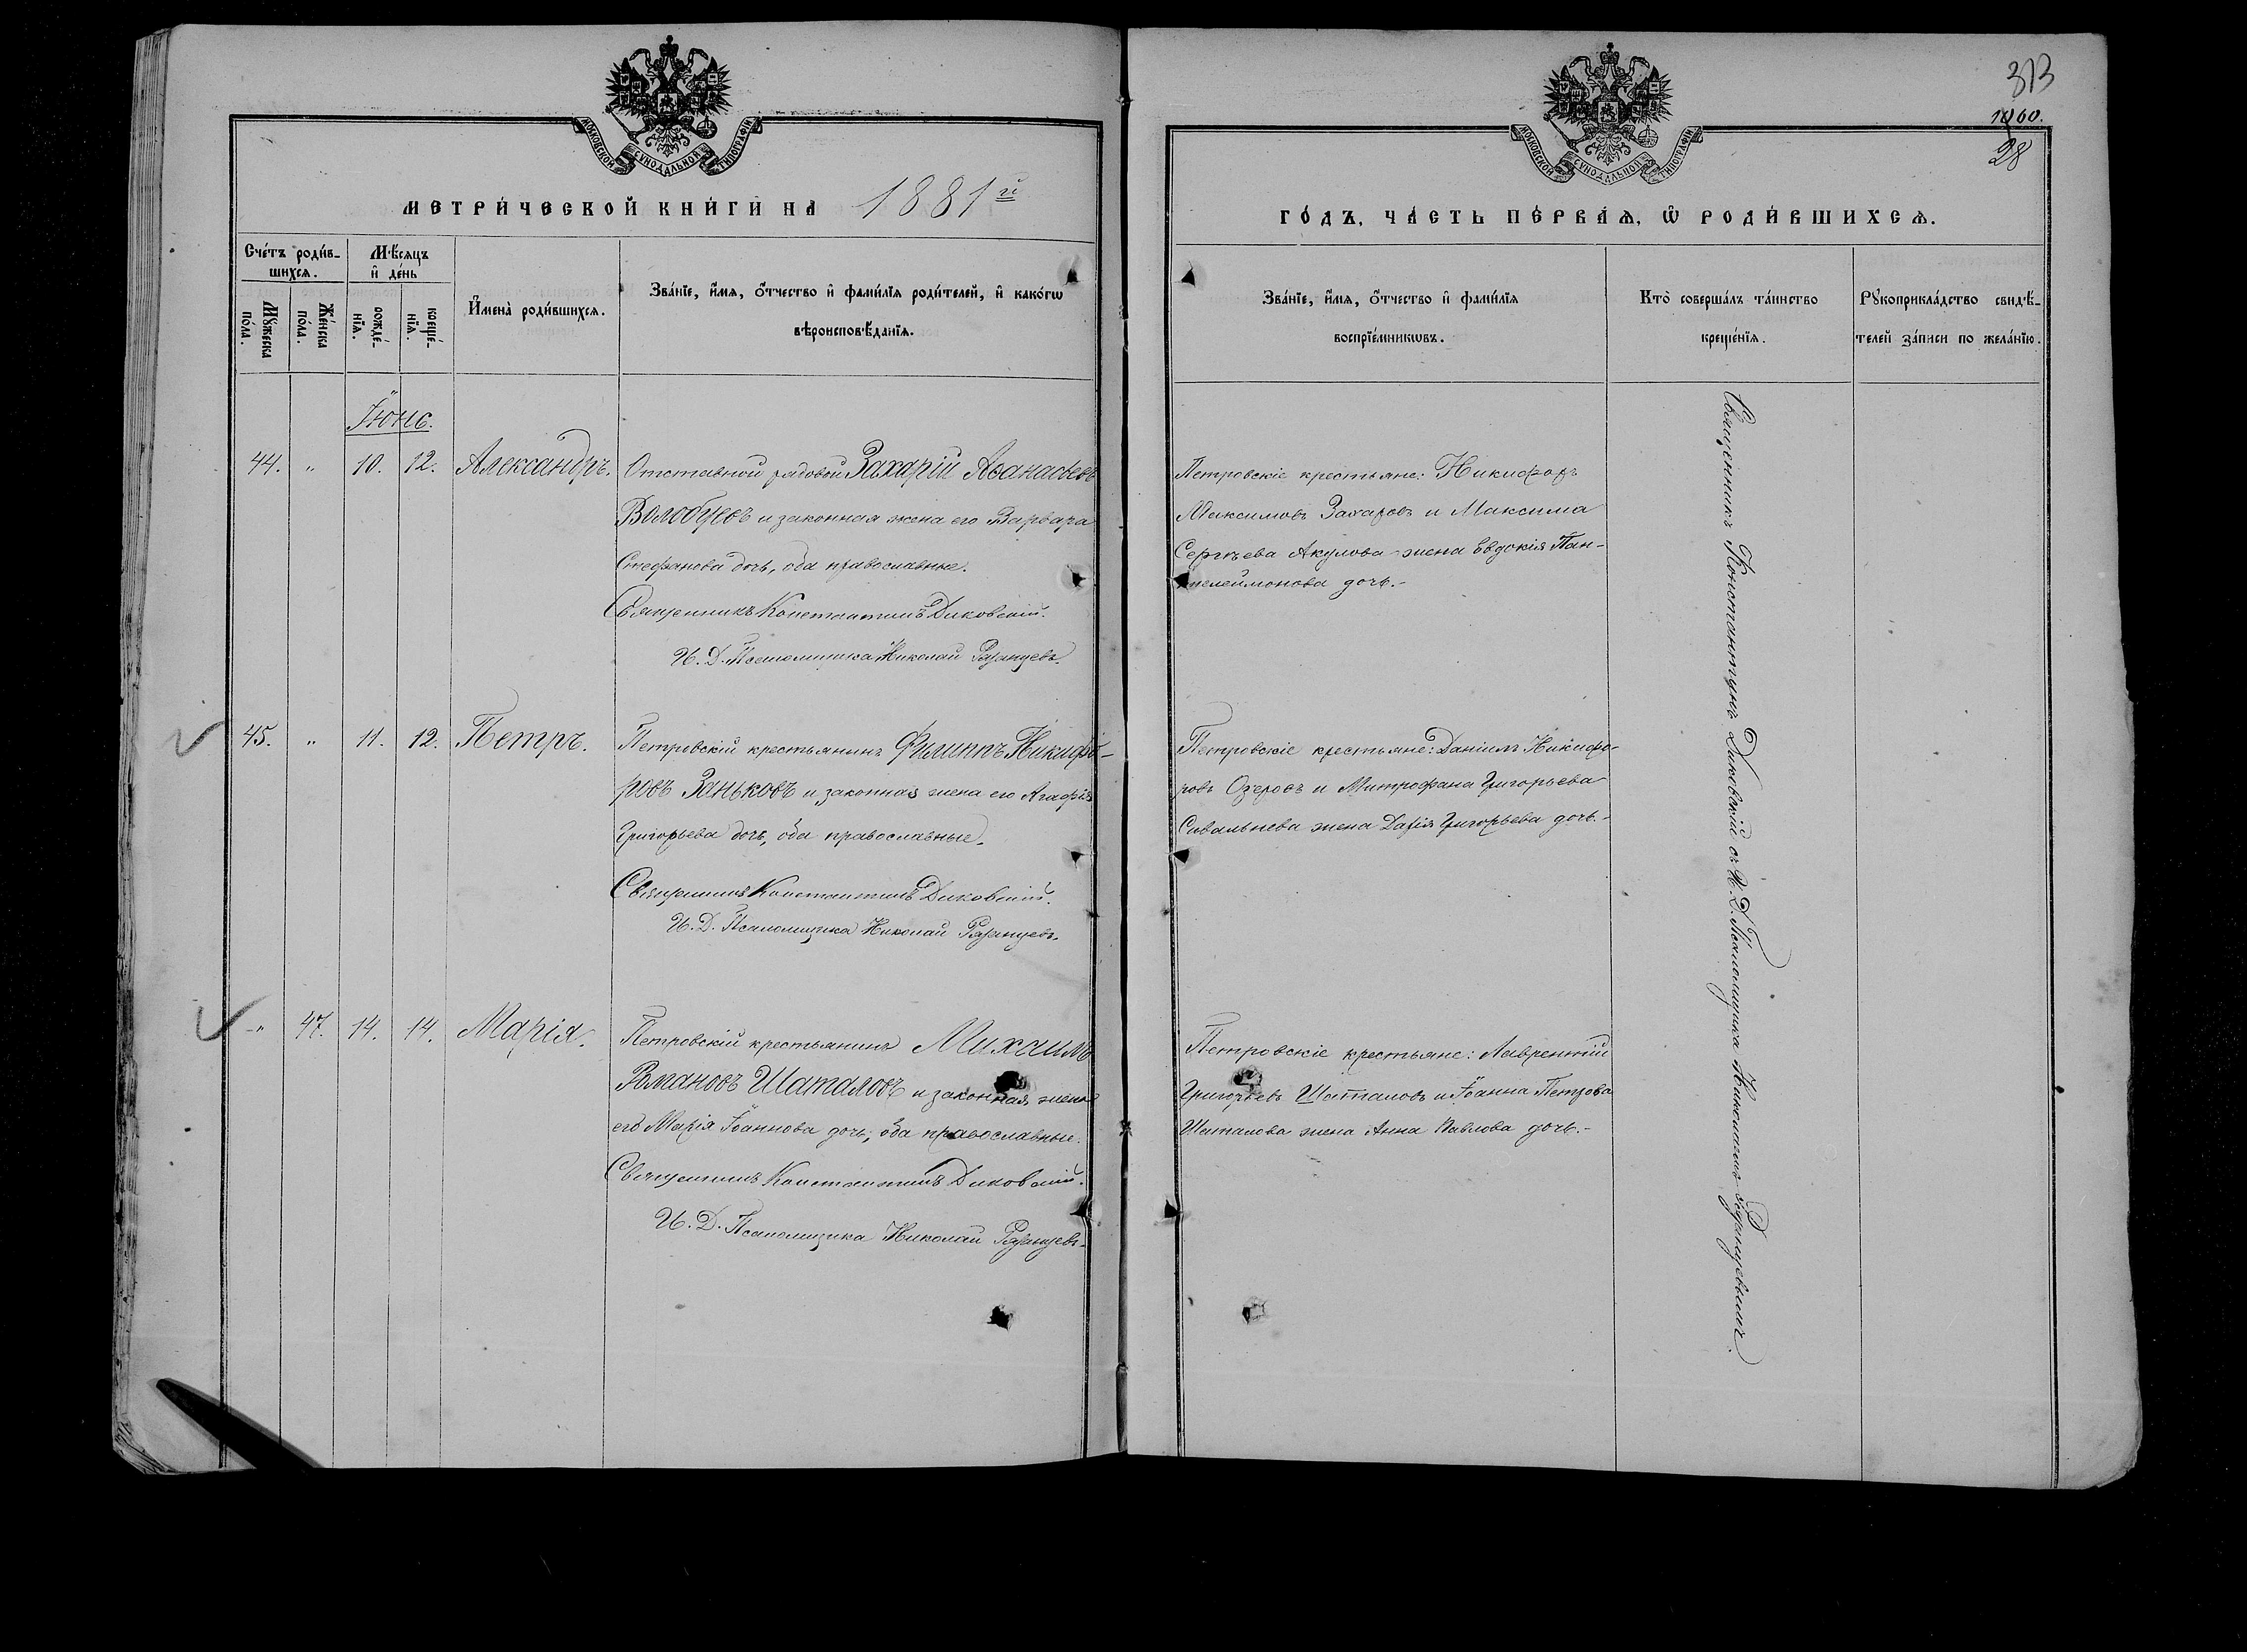 МОСКОВСКОЙ СѴНОДАЛЬНОЙ ТИПОГРАФІИ
МЕТРИ́ЧЕСКОЙ КНИ́ГИ НА 1881й
Сче́тъ роди́в-
шихся.
Мѣ́сяцъ
и҆ де́нь
Мꙋ́жеска
по́ла.
Же́нска
по́ла.
рожде́-
нїѧ.
креще́-
нїѧ.
И҆мена̀ роди́вшихся.
Зва́нїе, и҆́мѧ, ѻ҆́тчество и҆ фами́лїѧ роди́телей, и҆ како́гѡ
вѣроисповѣ́данїѧ.
Іюнь.
44. " 10. 12. Александръ.
Отставной рядовой Захарій Аѳанасьевъ
Волобуевъ и законная жена его Варвара
Стефанова дочь, оба православные.
Священникъ Константинъ Диковскій.
И. Д. Псаломщика Николай Рязанцевъ.
45. " 11. 12. Петръ.
Петровскій крестьянинъ Филиппъ Никифо-
ровъ Заньковъ и законная жена его Агафія
Григорьева дочь, оба православные.
Священникъ Константинъ Диковскій.
И. Д. Псаломщика Николай Рязанцевъ.
" 47. 14. 14. Марія.
Петровскій крестьянинъ Михаилъ
Романовъ Шаталовъ и законная жена
его Марія Іоаннова дочь, оба православные.
Священникъ Константинъ Диковскій.
И. Д. Псаломщика Николай Рязанцевъ.
313
1060.
28
МОСКОВСКОЙ СѴНОДАЛЬНОЙ ТИПОГРАФІИ
ГО́ДЪ, ЧА́СТЬ ПЕ́РВАѦ, Ѡ҆ РОДИ́ВШИХСѦ.
Зва́нїе, и҆́мѧ, ѻ҆́тчество и҆ фами́лїѧ
воспрїе́мникѡвъ.
Кто̀ соверша́лъ та́инство
креще́нїѧ.
Рꙋкоприкла́дство свидѣ́-
телей за́писи по жела́нїю.
Петровскіе крестьяне: Никифоръ
Максимовъ Захаровъ и Максима
Сергѣева Акулова жена Евдокія Пан-
телеймонова дочь.-
Петровскіе крестьяне: Даніилъ Никифо-
ровъ Озеровъ и Митрофана Григорьева
Савальнева жена Дарія Григорьева дочь.-
Петровскіе крестьяне: Лаврентій
Григорьевъ Шаталовъ и Іоанна Петрова
Шаталова жена Анна Павлова дочь.-
Священникъ Константинъ Диковскій съ И. Д. Псаломщика Николаемъ Рязанцевымъ.